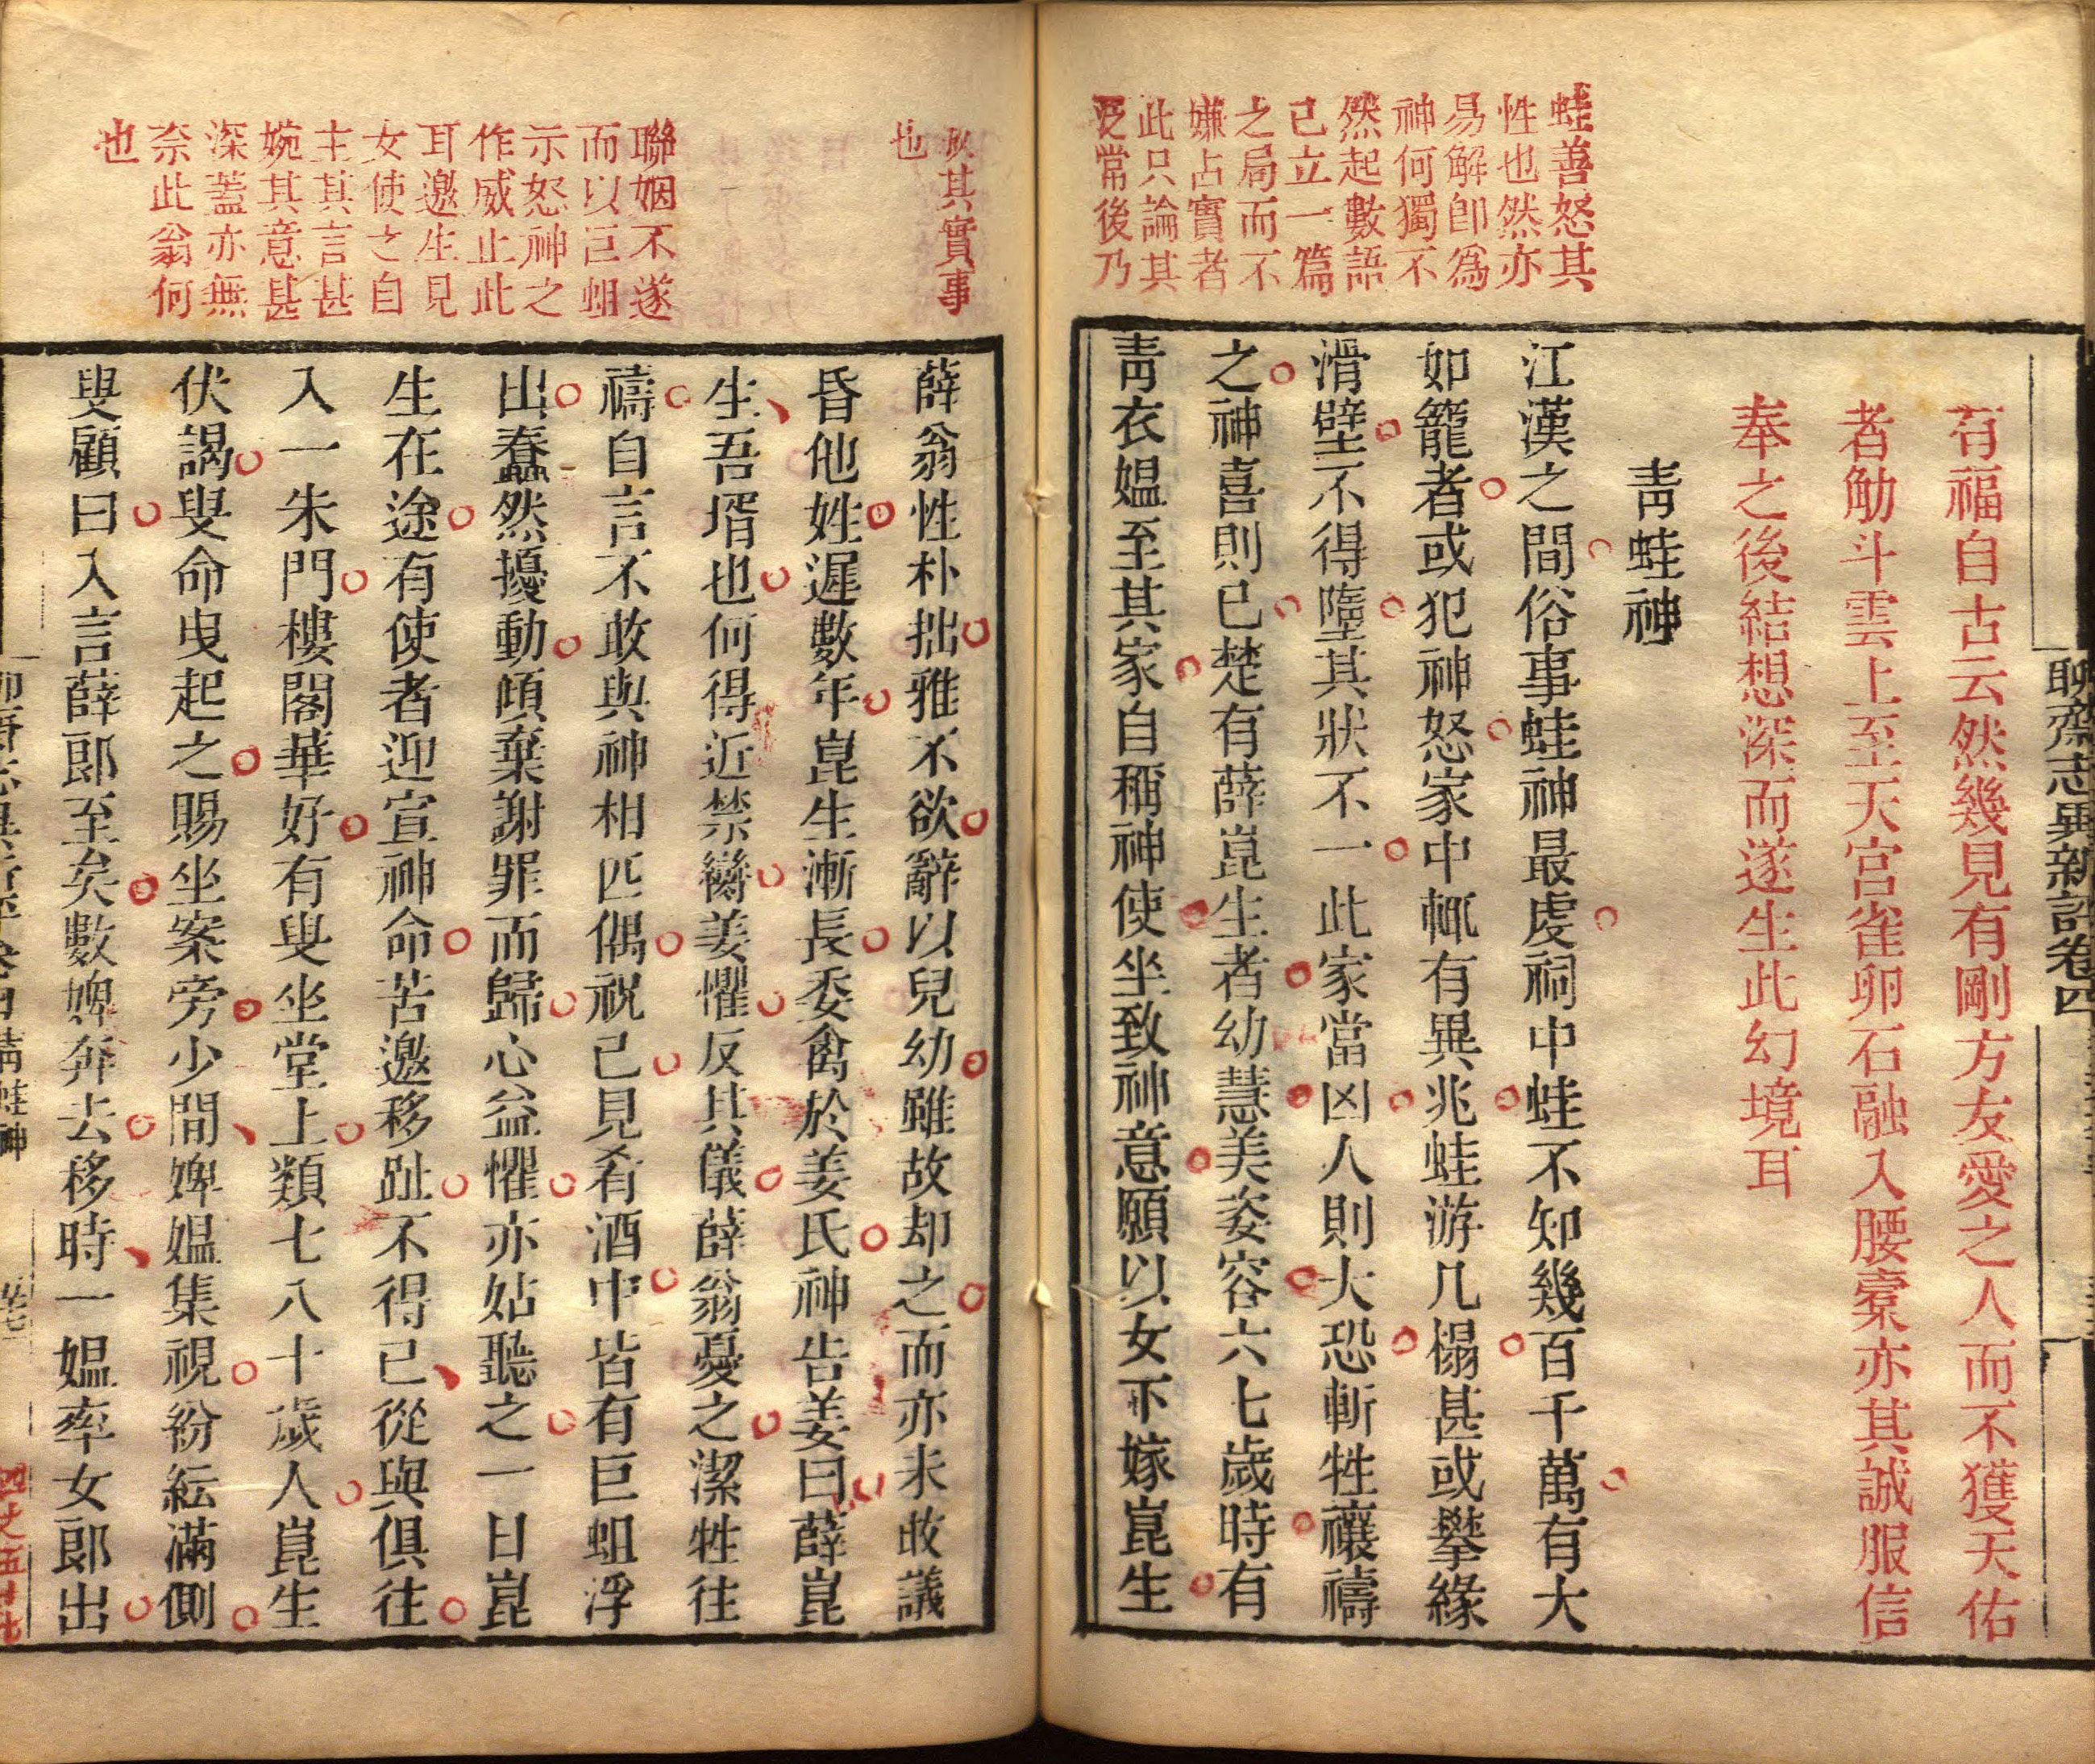 聊齋志異新評卷四
有福自古云然幾見有剛方友愛之人而不獲天佑
者觔斗雲上至天宫雀卵石融入腰橐亦其誠服信
奉之後結想深而遂生此幻境耳
靑蛙神
江漢之間俗事蛙神最虔祠中蛙不知幾百千萬有大
如籠者或犯神怒家中輒有異兆蛙游几榻甚或攀緣
滑壁不得墮其狀不一此家當凶人則大恐斬牲禳禱
之神喜則已楚有薛崑生者幼慧美姿容六七歲時有
靑衣媼至其家自稱神使坐致神意願以女下嫁崑生
蛙善怒其
性也然亦
易解卽爲
神何獨不
然起數語
已立一篇
之局而不
嫌占實者
此只論其
常後乃
薛翁性朴拙雅不欲辭以兒幼雖故却之而亦未敢議
昏他姓遲數年崑生漸長委禽於姜氏神告姜曰薛崑
生吾壻也何得近禁臠姜懼反其儀薛翁憂之潔牲往
禱自言不敢與神相匹偶祝已見肴酒中皆有巨蛆浮
出蠢然擾動傾棄謝罪而歸心益懼亦姑聽之一日崑
生在途有使者迎宣神命苦邀移趾不得已從與俱往
入一朱門樓閣華好有叟坐堂上類七八十歲人崑生
伏謁叟命曳起之賜坐案旁少間婢媼集視紛紜滿側
叟顧曰入言薛郎至矣數婢奔去移時一媼率女郎出
其實事
也
聯姻不遂
而以巨蛆
示怒神之
作威止此
耳邀生見
女使之自
主其言甚
婉其意甚
深蓋亦無
奈此翁何
也
靑蛙神